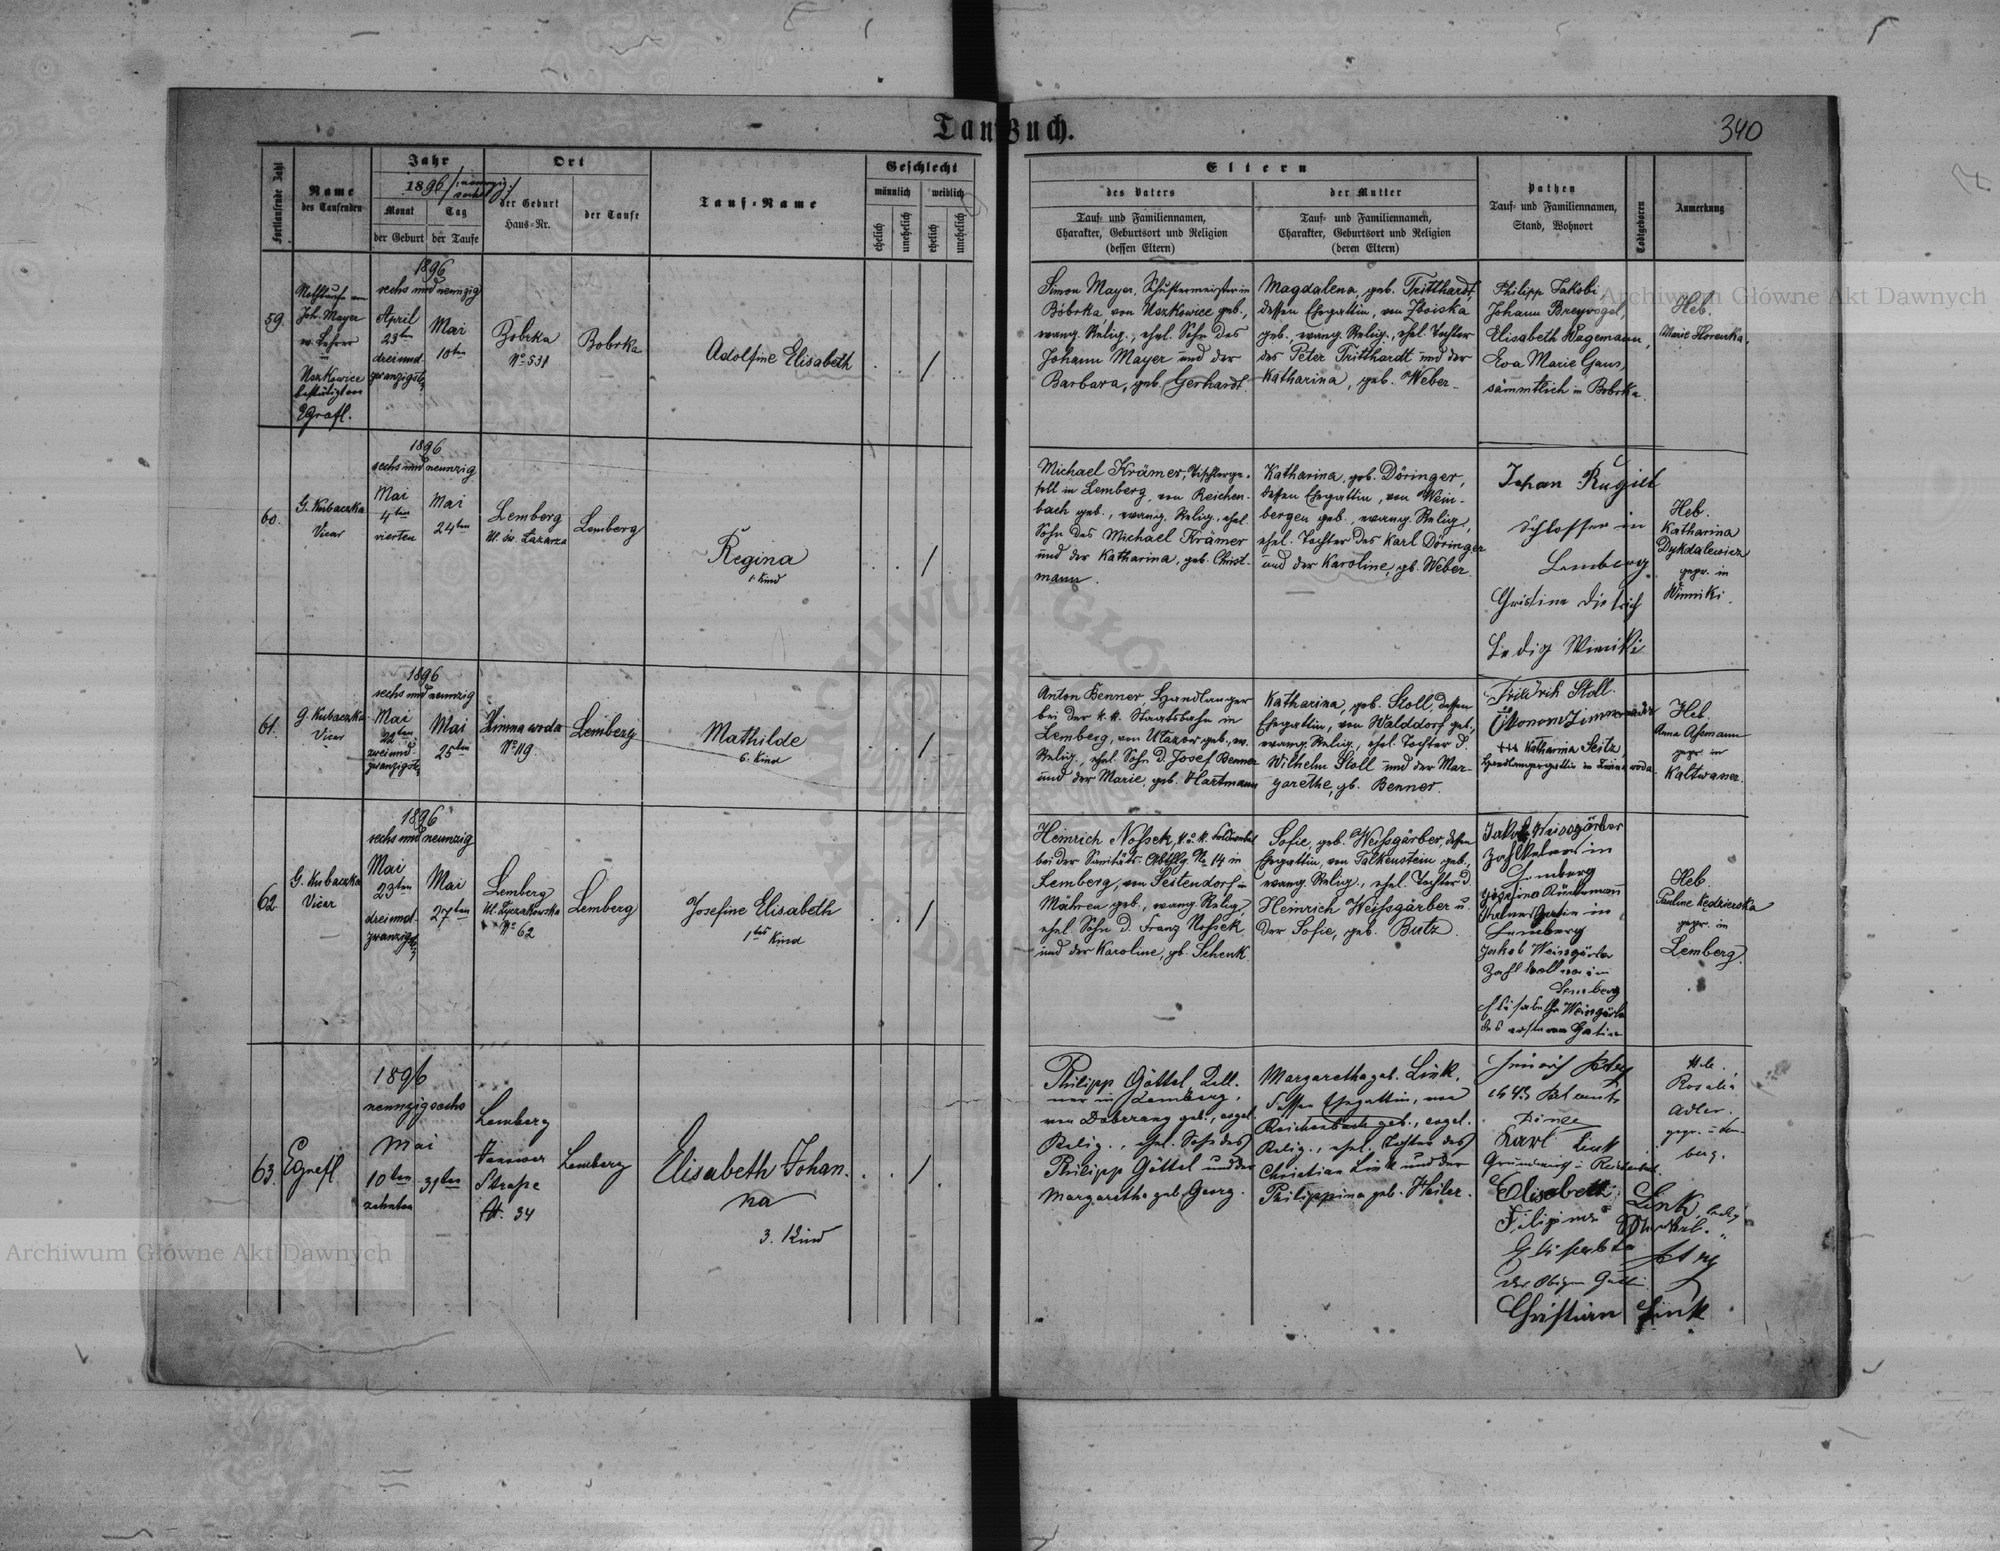 Taufbuch.
340
Fortlaufende Zahl
Name
des Taufenden
Jahr
1896
Monat
Tag
der Geburt
der Taufe
Ort
der Geburt
Haus-Nr.
der Taufe
Tauf-Name
Geschlecht
männlich
weiblich
ehelich
unehelich
ehelich
unehelich
Eltern
des Vaters
Tauf- und Familiennamen,
Charakter, Geburtsort und Religion
(dessen Eltern)
der Mutter
Tauf- und Familiennamen,
Charakter, Geburtsort und Religion
(deren Eltern)
Pathen
Tauf- und Familiennamen,
Stand, Wohnort
Todtgeboren
Anmerkung
59.
Nothtaufe von
Joh. Mayer
ev. Lehrer
in
Uszkowice
bestätigt von
Egrafl.
1896
sechs und neunzig
April
23ten
dreiund-
zwanzigsten
Mai
10ten
Bobrka
No 531
Bobrka
Adolfine Elisabeth
Simon Mayer, Schustermeister in
Bóbrka von Uszkowice geb.,
evang. Relig., ehel. Sohn des
Johann Mayer und der
Barbara, geb. Gerhardt.
Magdalena, geb. Tritthardt,
dessen Ehegattin, von Zboiska
geb., evang. Relig., ehel. Tochter
des Peter Tritthardt und der
Katharina, geb. Weber.
Philipp Jakobi,
Johann Breyvogel,
Elisabeth Wagemann,
Eva Marie Gans,
sämmtlich in Bobrka.
Heb.
Marie
60.
G. Kubaczka
Vicar
1896
sechs und neunzig
Mai
4ten
vierten
Mai
24ten
Lemberg
Ul. św. Lazarza
Lemberg
Regina
1. Kind
Michael Krämer, Tischlerge-
sell in Lemberg, von Reichen-
bach geb., evang. Relig., ehel.
Sohn des Michael Krämer
und der Katharina, geb. Christ-
mann.
Katharina, geb. Döringer,
dessen Ehegattin, von Wein-
bergen geb., evang. Relig.,
ehel. Tochter des Karl Döringer
und der Karoline, gb. Weber.
Johan
Schlosser in
Lemberg
Christine Dietrich
Ledig Winiki
Heb.
Katharina
Dykdalewicz
gepr. in
Winniki.
61.
G. Kubaczka
Vicar
1896
sechs und neunzig
Mai
22ten
zweiund-
zwanzigsten
Mai
25ten
Zimna woda
No 119.
Lemberg
Mathilde
6. Kind
Anton Benner, Handlanger
bei der k.k. Staatsbahn in
Lemberg, von geb., ev.
Relig., ehel. Sohn d. Josef Benner
und der Marie, geb. Hartmann
Katharina, geb. Stoll, dessen
Ehegattin, von Walddorf geb.,
evang. Relig., ehel. Tochter d.
Wilhelm Stoll und der Mar-
garethe, gb. Benner.
Fridrik Stoll.
Ökonom Zimnawoda
+++ Katharina Seitz,
Handlangersgattin in Zimna woda.
Heb.
Anna Assmann
gepr. in
Kaltwasser.
62.
G. Kubaczka
Vicar
1896
sechs und neunzig
Mai
23ten
dreiund-
zwanzigsten
Mai
27ten
Lemberg
Ul. Łyczakowska
No 62
Lemberg
Josefine Elisabeth
1tes Kind
Heinrich Nossek, k. u. k.
bei der Sanitäts-Abthlg. No 14 in
Lemberg, von Seitendorf in
Mähren geb., evang. Relig.,
ehel. Sohn d. Franz Nossek
und der Karoline, gb. Schenk.
Sofie, geb. Weissgärber, dessen
Ehegattin, von Falkenstein geb.,
evang. Relig., ehel. Tochter d.
Heinrich Weissgärber u.
der Sofie, geb. Butz.
Jakob Weissgärber
Zahlkelner in
Lemberg
Josefina
Kelners Gattin in
Lemberg
Jakob
Zahlkellner in
Lemberg
Elisabetha
des ersteren Gattin
Heb.
Pauline Kędzierska
gepr. in
Lemberg.
63.
Egrafl.
1896
neunzigsechs
Mai
10ten
zehnten
31ten
Lemberg
Janower
Straße
No. 34
Lemberg
Elisabeth Johan-
na
3. Kind
Philipp Göttel, Kell-
ner in Lemberg,
von geb., evgel.
Relig., ehel. Sohn des
Philipp Göttel und der
Margaretha geb. Georg.
Margaretha geb. Link,
dessen Ehegattin, von
Reichenbach geb., evgel.
Relig., ehel. Tochter des
Christian Link und der
Philippina geb. Heiler.
Karl Link
Elisabeth Link, ledig
Filipine
Elisabeta
der Obigen Gattin
Christian Link
Heb.
Rosalia
Adler.
gepr. in Lem-
berg.
Archiwum Główne Akt Dawnych
Archiwum Główne Akt Dawnych